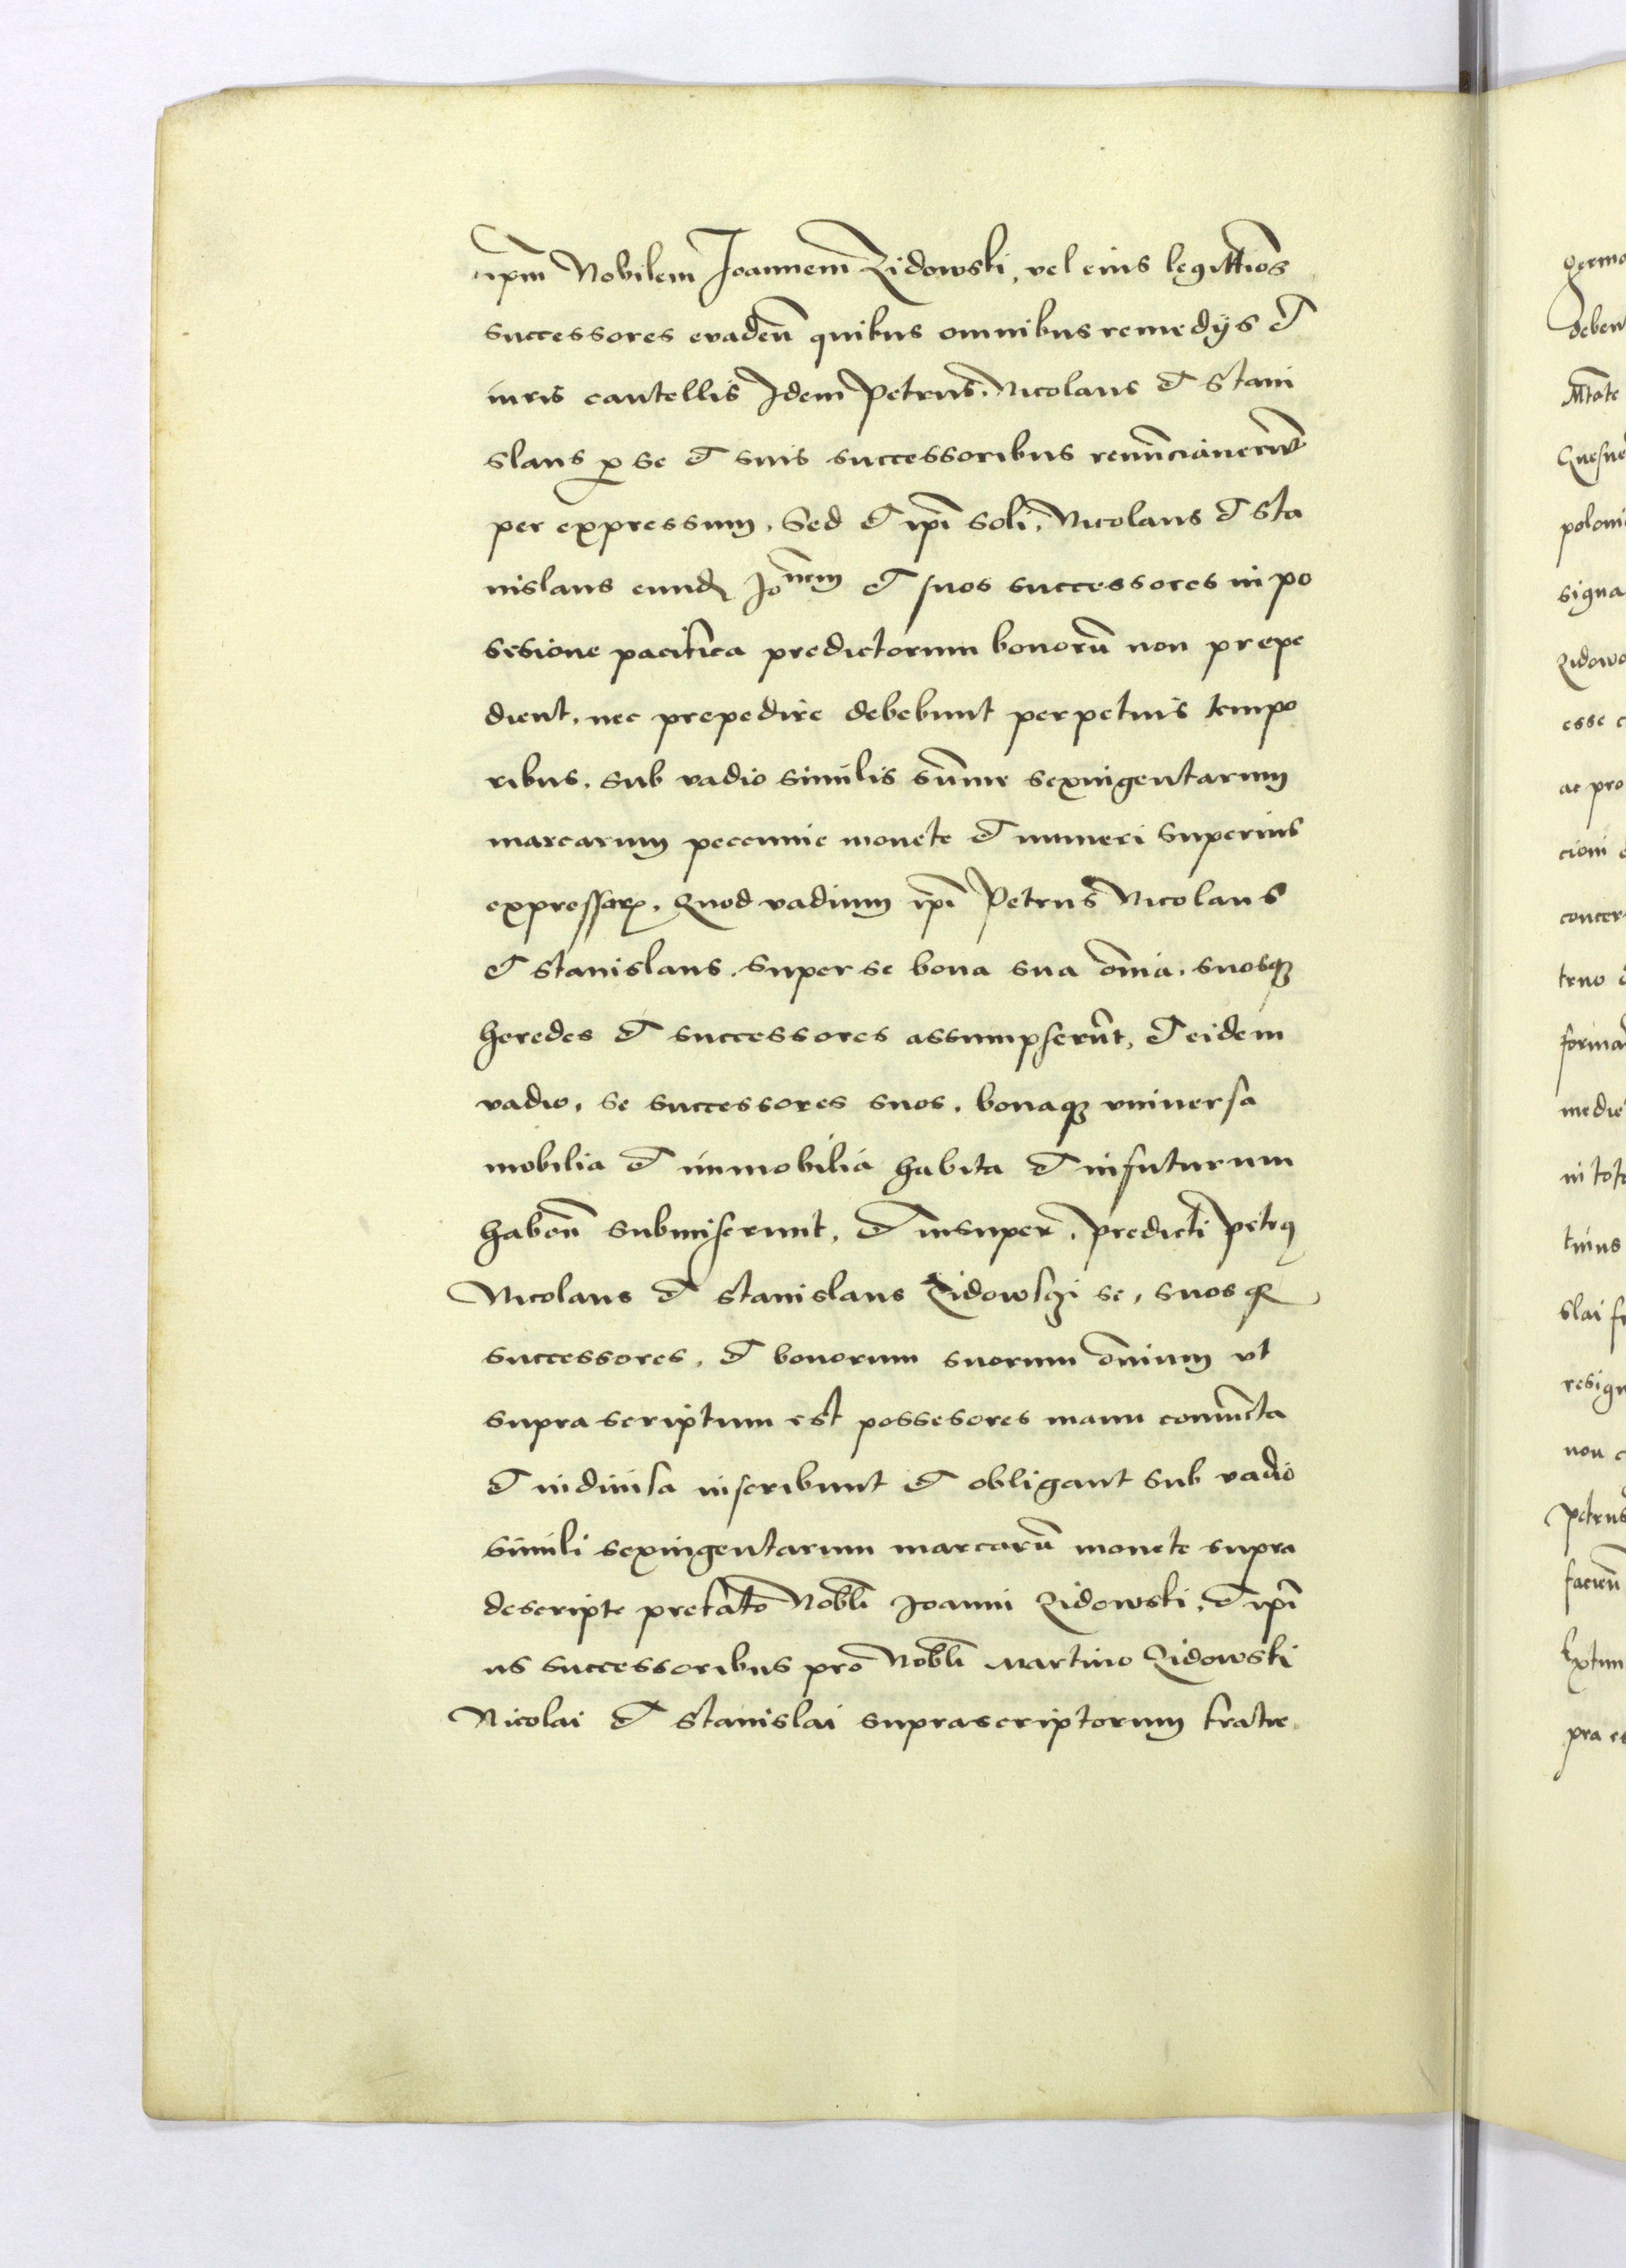 ipm̄ Nobilem Joannem Zidowski, vel eius legittīos
successores evadeñ quibus omnibus remedijs et
iuris cautellis Idem Petrus, Nicolaus et Stani
slaus ꝑ se et suis successoribus renuncciauerūt
per expressum, Sed et ip̄i soli, Nicolaus et Sta
nislaus eund Joñem et suos successores in po
sesione pacifica predictorum bonorū non prepe
dient, nec prepedire debebunt perpetuis tempo
ribus, sub vadio similis sūme sexingentarum
marcarum peccunie monete et numeri superius
expressarꝝ, Quod vadium ip̄i Petrus Nicolaus
et Stanislaus, super se bona sua om̄ia, suosqꝫ
heredes et successores assumpserūt, et eidem
vadio, se successores suos, bonaqꝫ vniuersa
mobilia et immobilia habita et infuturum
habeñ submiserunt, et insuper, predicti Petrꝯ
Nicolaus et Stanislaus Zidowsci se, suosqꝫ
successores, et bonorum suorum om̄ium vt
supra scriptum est possesores manu coniūcta
et indiuisa inscribunt et obligant sub vadio
simili sexingentarum marcarū monete supra
descripte prefato Nobli Joanni Zidowski, et ip̄i
us successoribus pro Nobli Martino Zidowski
Nicolai et Stanislai suprascriptorum fratre
germa
deben
Mtate
poloni
signa
Zidow
esse c
ac pro
cioni
concer
truo
forma
medie
in tot
tinus
slai fr
resign
non c
Petrus
facieñ
pra es